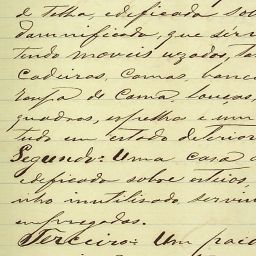 de telha, edificada so
damnificada, que ser
tendo moveis uzados, ta
cadeiras, camas, banc
roupa de cama, louças,
quadros, espelho e um
tudo em estado deterior
Segundo: Uma casa d
edificada sobre esteios,
nho inutilisado, servin
empregadas.
Terceiro: Um paio